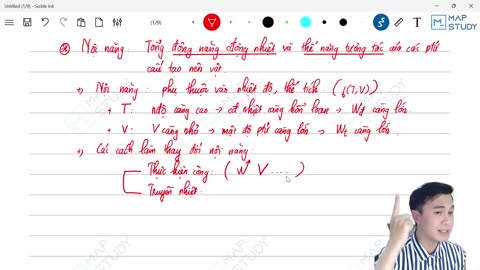 Untitled (1/9) - Scrible Ink
(1/9)
MAP STUDY
⊛ Nội năng: Tổng động năng động nhiệt và thế năng tương tác của các ptử
cấu tạo nên vật.
+) Nội năng: phụ thuộc vào nhiệt độ, thể tích. (f(T,V))
+ T: nđộ càng cao → cđ nhiệt càng hỗn loạn → Wđ càng lớn.
+ V: V càng nhỏ → mật độ ptử càng lớn → Wt càng lớn.
+) Các cách làm thay đổi nội năng:
Thực hiện công: ( W V ..... )
Truyền nhiệt.
MAP STUDY